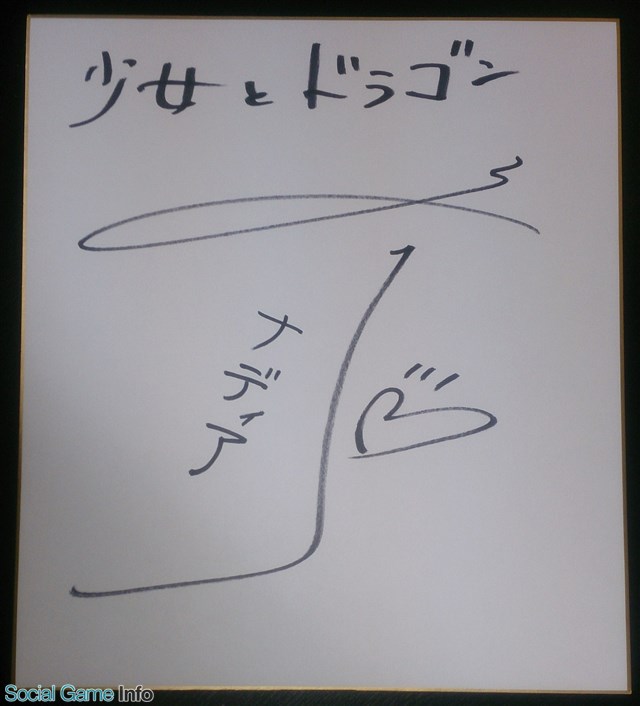 少女とドラゴン
ナディア
Social Game Info